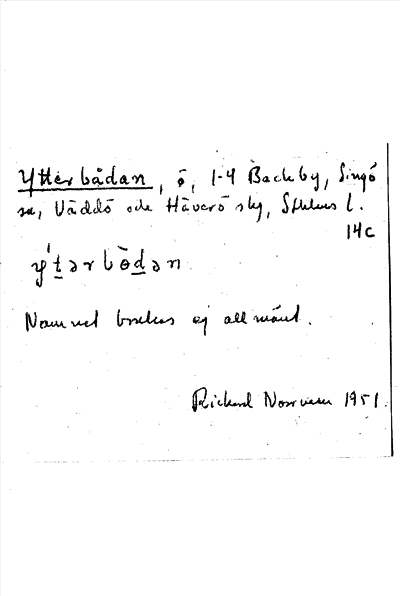 Ytterbådan, ö, 1-4 Backby, Singö
sn, Väddö och Häverö skg, Sthlms l.
14c
ýt̲ərbòd̲ən
Namnet brukas ej allmänt.
Richard Norrman 1951.